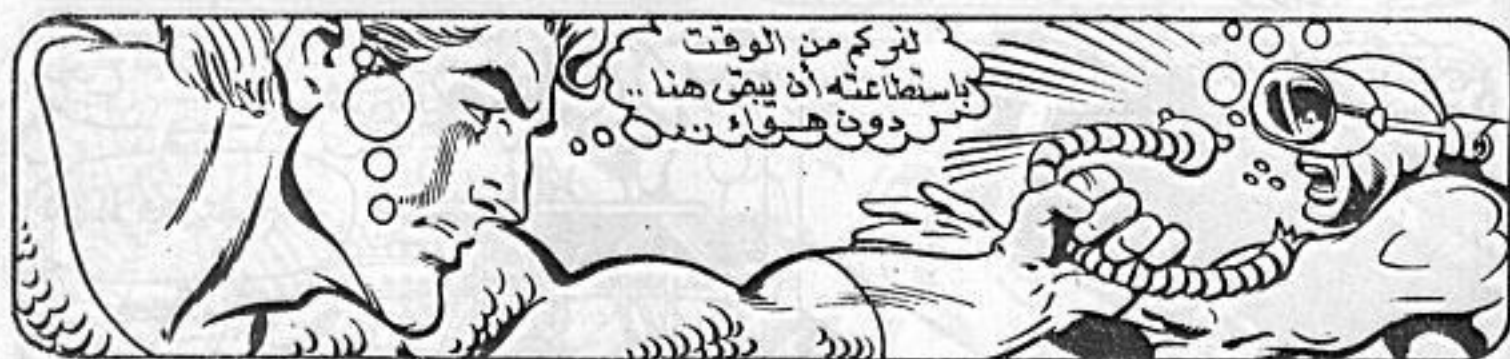 لنر كم من الوقت
باستطاعته أن يبقى هنا ..
دون هواء ..